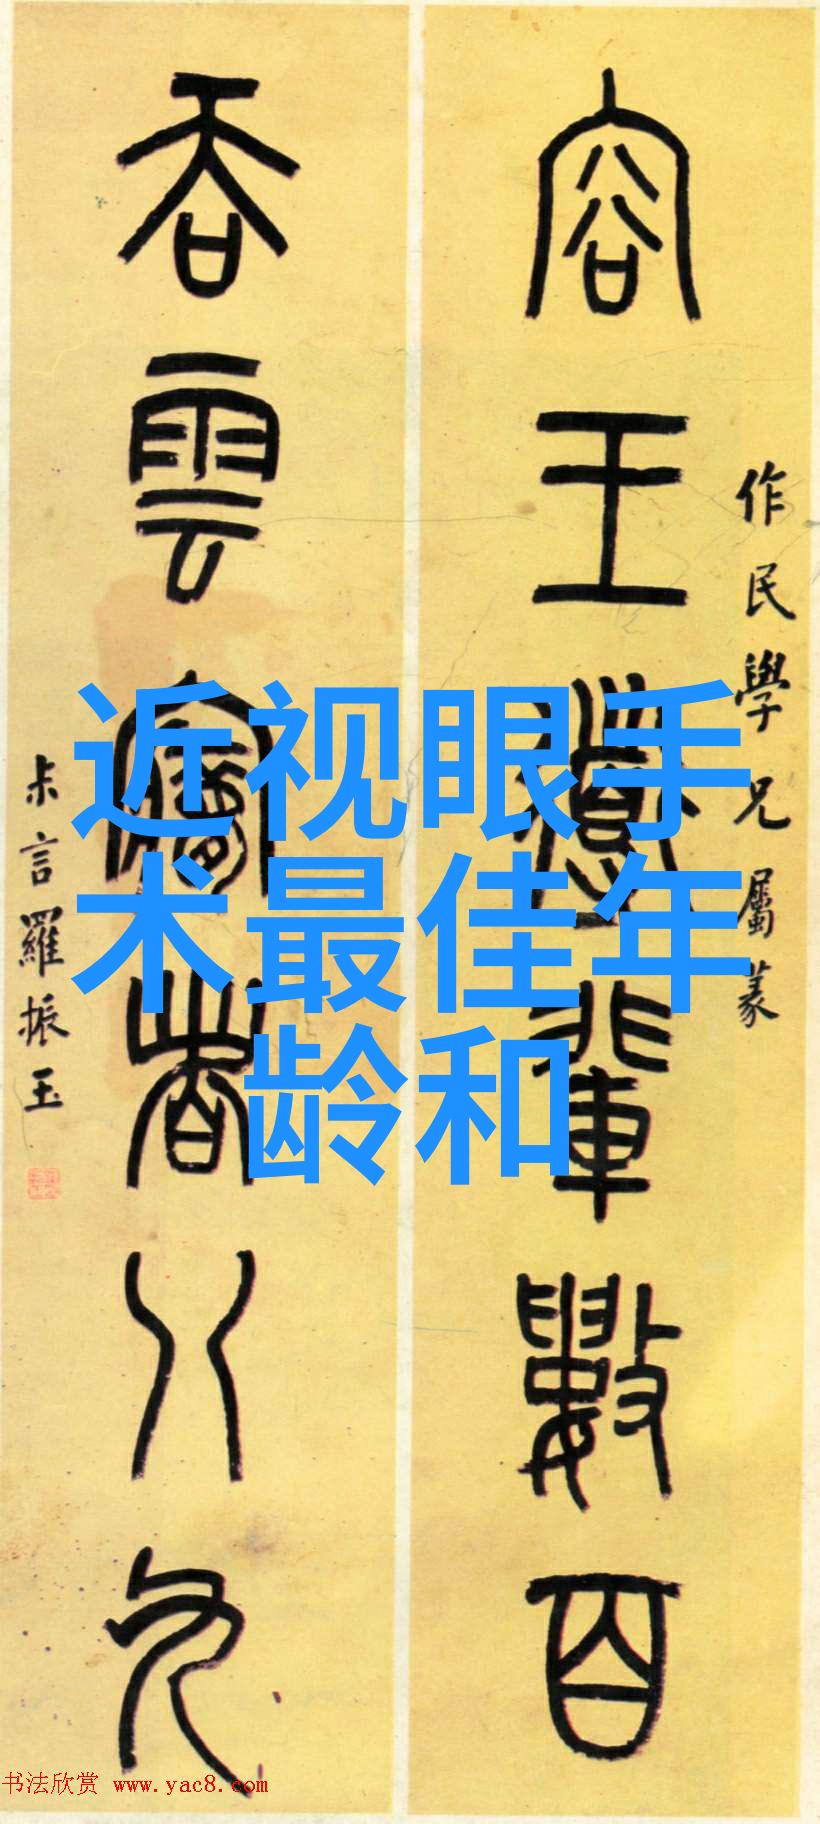 容王導輩數百
作民學兄屬篆
吞雲夢者八九
未言羅振玉
近视眼手
术最佳年
龄和
书法欣赏 www.yac8.com